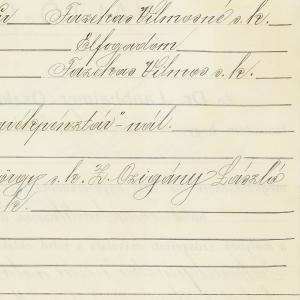 Fazikas Vilmosné s. k.
Elfogadom
Fazikas Vilmos s. k.
"-nál.
s. k. Z. Czigány László
k.